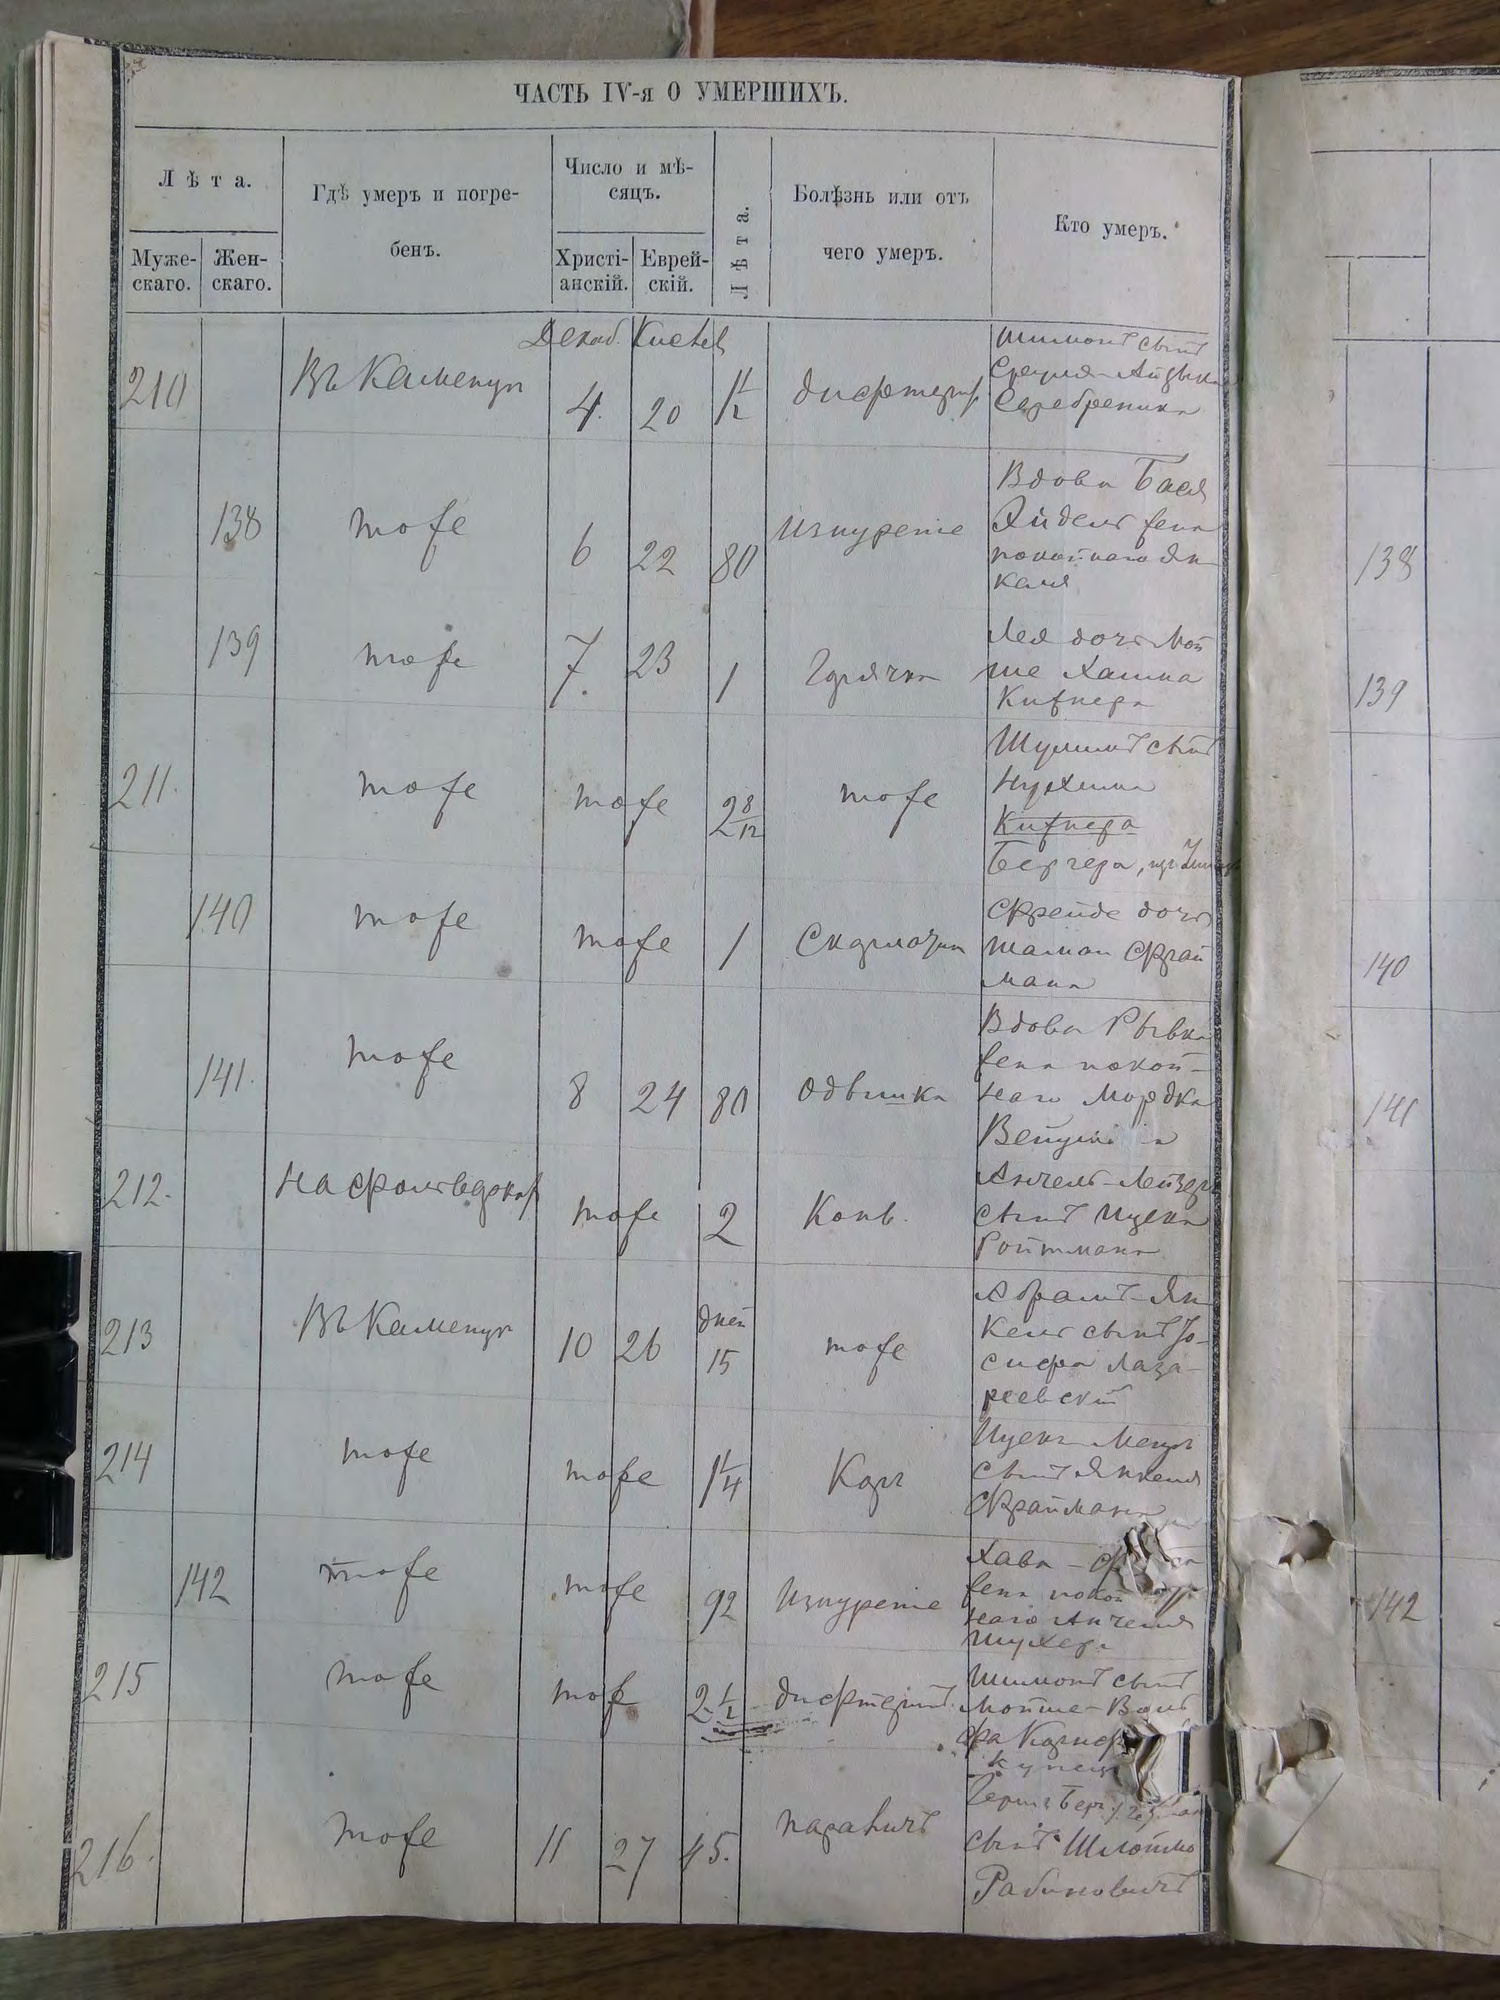 ЧАСТЬ IV-я О УМЕРШИХЪ.
Лѣта.
Муже-
скаго.
Жен-
скаго.
Гдѣ умеръ и погре-
бенъ.
Число и мѣ-
сяцъ.
Христі-
анскій.
Еврей-
скій.
Лѣта.
Болѣзнь или отъ
чего умеръ.
Кто умеръ.
Декаб. Кислев
210 Въ Каменцѣ 4. 20 1/2 дифтерит
Шимонъ сынъ
Айзыка
Серебреника
138 тоже 6 22 80 Изнуреніе
Вдова Бася
Эйдель жена
покойнаго Ян-
келя
139 тоже 7. 23 1 Горячка
Лея дочь Мой
ше Хаима
Китнера
211. тоже тоже 2 8/12 тоже
Шулимъ сынъ
Нухима
Китнера
Бергера,
140 тоже тоже 1 Скарлатин
Фрейде дочь
Фрай
мана
141. тоже 8 24 80 одышка
Вдова Рывка
жена покой-
наго Мордка
212. тоже 2 Конв.
Анчель-Лейзеръ
сынъ Ицека
Ройтмана
213 Въ Каменцѣ 10 26 дней 15 тоже
Абрамъ-Ян
кель сынъ Іо-
сифа Лаза-
реевскій
214 тоже тоже 1 1/4 Корь
Ицекъ
сынъ Янкеля
Фраймана
142 тоже тоже 92 Изнуреніе
Хава -
жена покой
наго Анчеля
Шухера
215 тоже тоже 2 1/2 дифтеритъ.
Шимонъ сынъ
Мойше-Воль
фа
купец
216. тоже 11 27 45. параличъ
сынъ Шлоймо
Рабиновичъ
138
139
140
141
142